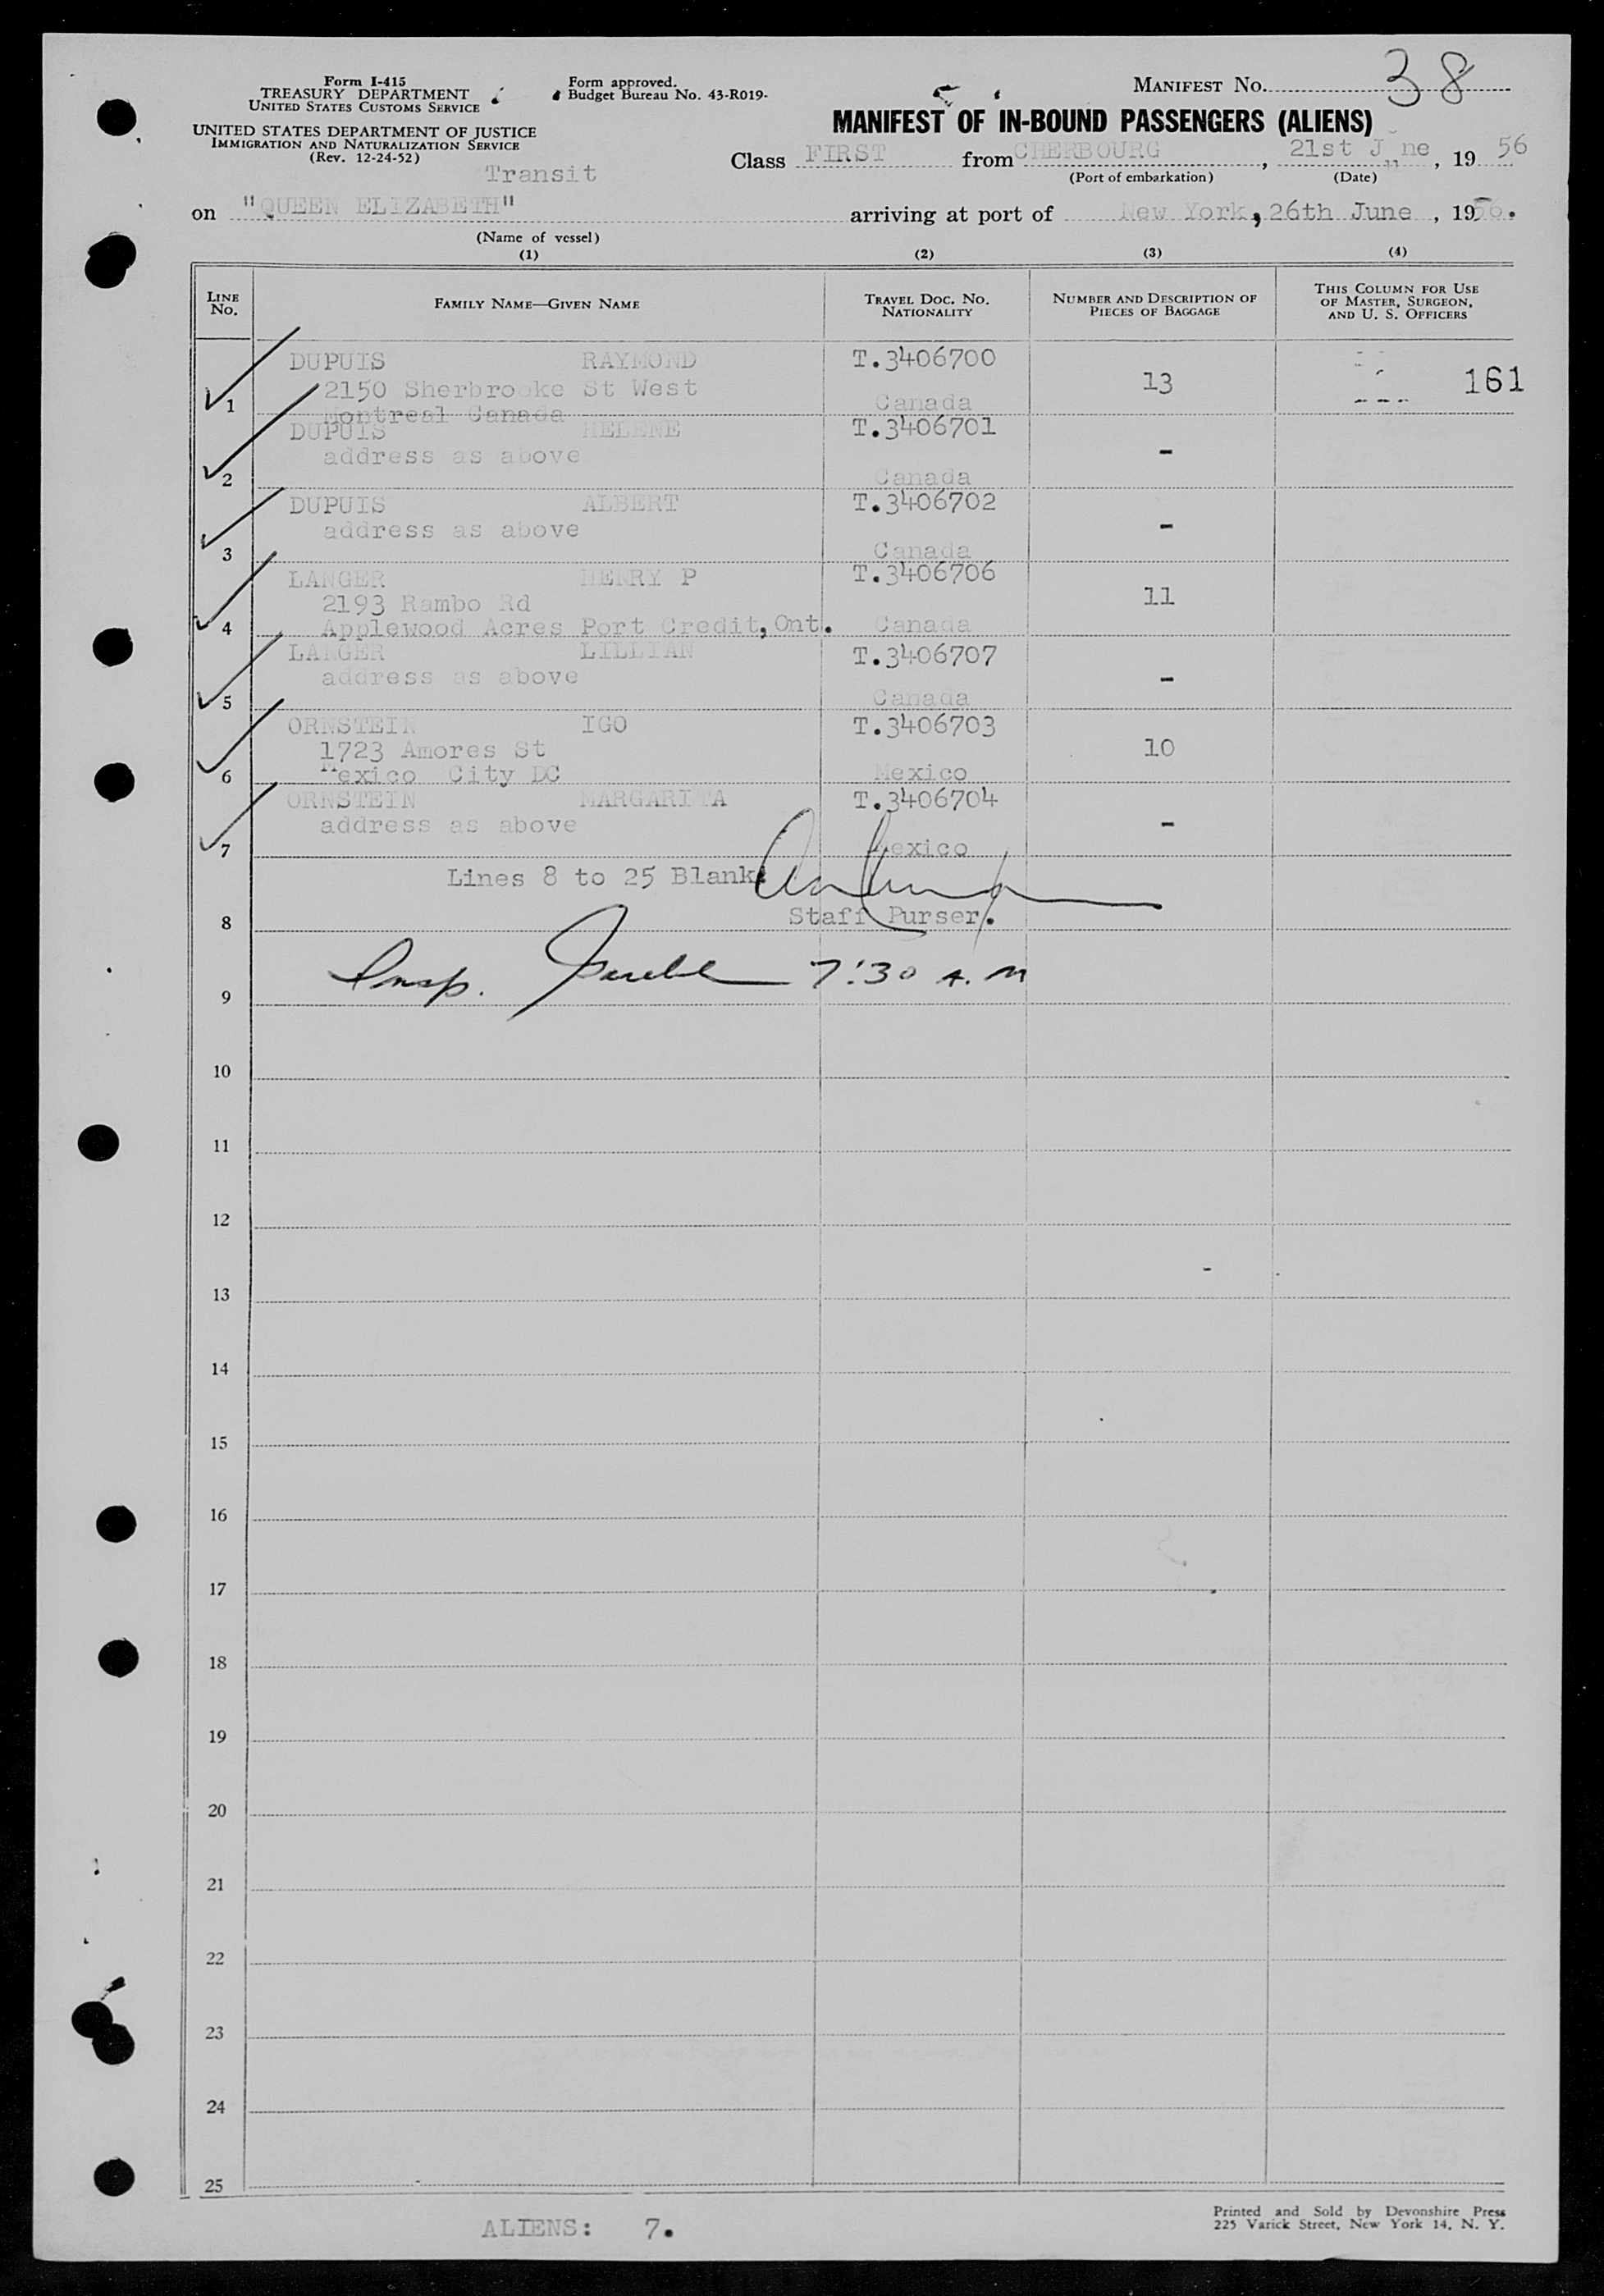 Form I-415
TREASURY DEPARTMENT
UNITED STATES CUSTOMS SERVICE
UNITED STATES DEPARTMENT OF JUSTICE
IMMIGRATION AND NATURALIZATION SERVICE
(Rev. 12-24-52)
Form approved.
Budget Bureau No. 43-R019-
MANIFEST NO. 38
MANIFEST OF IN-BOUND PASSENGERS (ALIENS)
Class FIRST from CHERBOURG, 21st J ne, 19 56
(Port of embarkation) (Date)
Transit
on "QUEEN ELIZABETH" arriving at port of New York, 26th June, 1956.
(Name of vessel)
(1) (2) (3) (4)
LINE NO. FAMILY NAME—GIVEN NAME TRAVEL DOC. NO. NATIONALITY NUMBER AND DESCRIPTION OF PIECES OF BAGGAGE THIS COLUMN FOR USE OF MASTER, SURGEON, AND U. S. OFFICERS
DUPUIS RAYMOND T.3406700
2150 Sherbrooke St West 13 161
1 Montreal Canada Canada
DUPUIS HELENE T.3406701
address as above -
2 Canada
DUPUIS ALBERT T.3406702
address as above -
3 Canada
LANGER HENRY P T.3406706
2193 Rambo Rd 11
4 Applewood Acres Port Credit, Ont. Canada
LANGER LILLIAN T.3406707
address as above -
5 Canada
ORNSTEIN IGO T.3406703
1723 Amores St 10
6 Mexico City DC Mexico
ORNSTEIN MARGARITA T.3406704
address as above -
7 Mexico
Lines 8 to 25 Blank
8 Staff Purser.
Insp. 7:30 A. M
9
10
11
12
13
14
15
16
17
18
19
20
21
22
23
24
25
ALIENS: 7.
Printed and Sold by Devonshire Press
225 Varick Street, New York 14, N. Y.